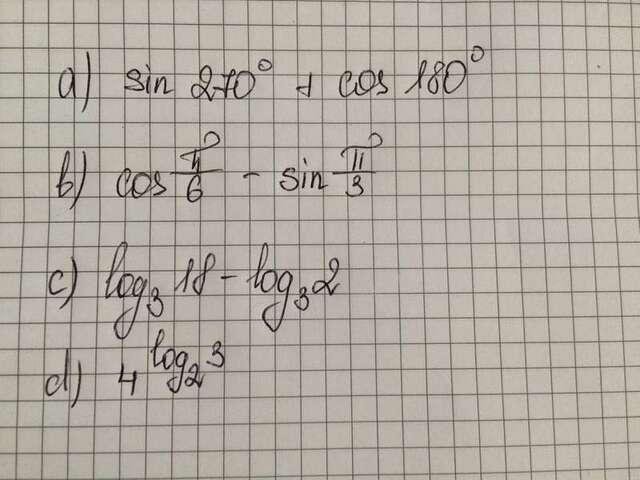 a) sin 270° + cos 180°
b) cos π/6 - sin π/3
c) log₃ 18 - log₃ 2
d) 4^log₂ 3